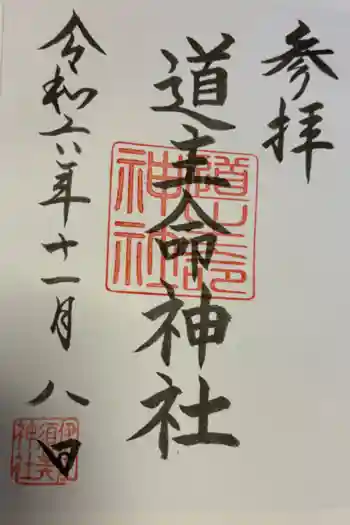 参拝
道主命神社
令和六年十一月八日
道主命
神社
伊
須
神社